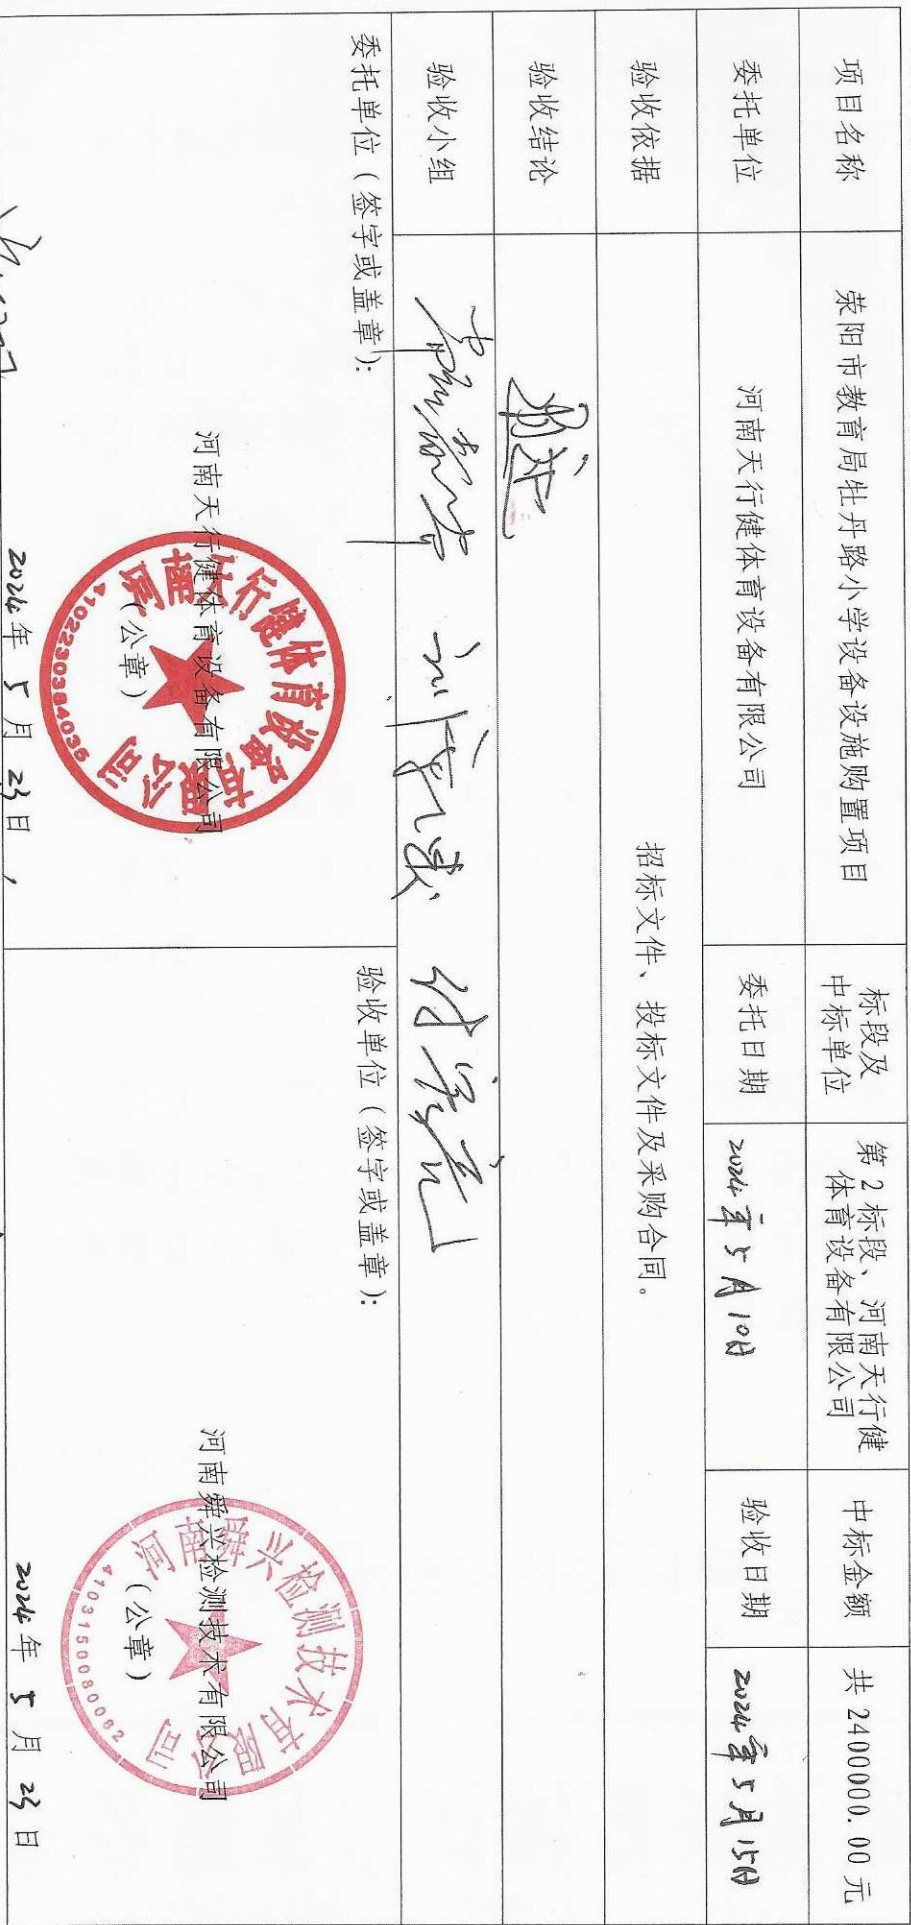 项目名称
荥阳市教育局牡丹路小学设备设施购置项目
标段及
中标单位
第2标段、河南天行健
体育设备有限公司
中标金额
共2400000.00元
委托单位
河南天行健体育设备有限公司
委托日期
2024年5月10日
验收日期
2024年5月15日
验收依据
招标文件、投标文件及采购合同。
验收结论
验收小组
委托单位（签字或盖章）：
河南天行健体育设备有限公司
（公章）
河南天行健体育设备有限公司
4102230384035
2024年5月23日
验收单位（签字或盖章）：
河南舜兴检测技术有限公司
（公章）
河南舜兴检测技术有限公司
4103150080082
2024年5月23日